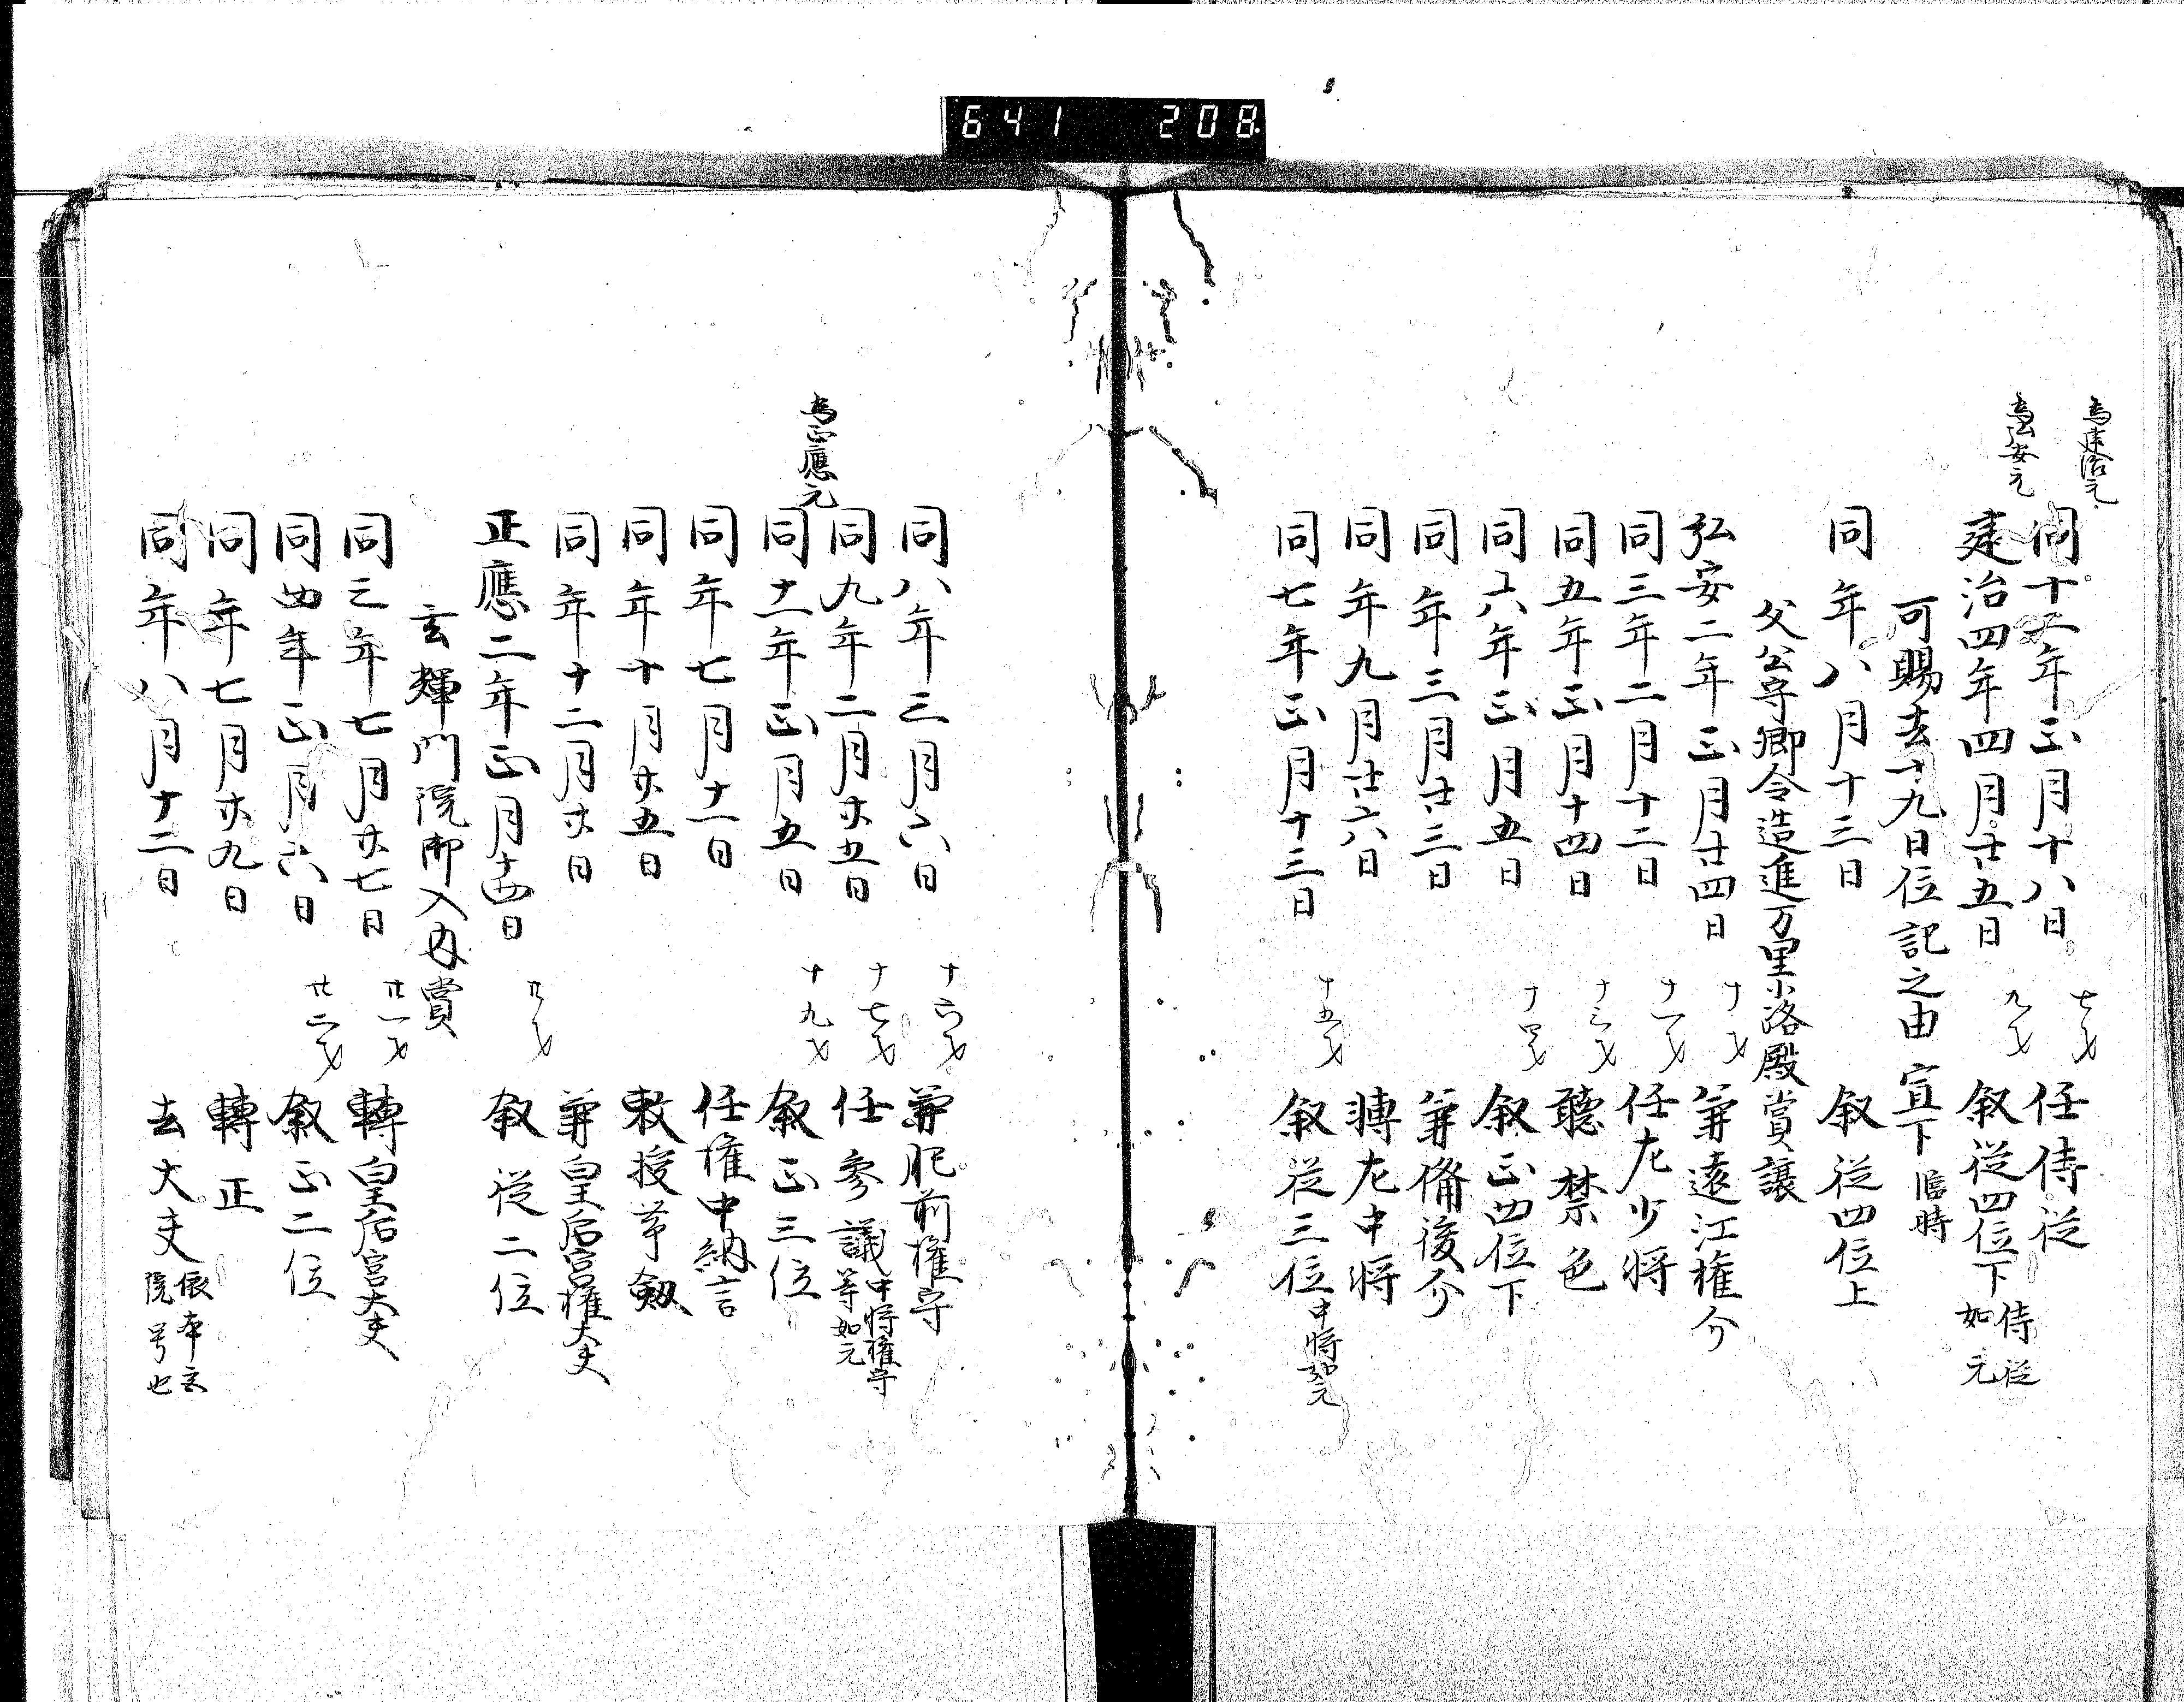 641 208
為建治元
同十二年正月十八日 七才 任侍従
為弘安元
建治四年四月廿五日 九才 叙従四位下 侍従如元
可賜去十九日位記之由 宣下 臨時
同年八月十三日 叙従四位上
父公守卿令造進万里小路殿賞讓
弘安二年正月廿四日 十才 兼遠江権介
同三年二月十二日 十一才 任左少将
同五年正月十四日 十三才 聴禁色
同六年正月五日 十四才 叙正四位下
同年三月廿三日 兼備後介
同年九月廿六日 轉左中将
同七年正月十三日 十五才 叙従三位 中将如元
同八年三月六日 十六才 兼肥前権守
同九年二月廿五日 十七才 任参議 中将権守等如元
為正應元
同十一年正月五日 十九才 叙正三位
同年七月十一日 任権中納言
同年十月廿五日 敕授帯剱
同年十二月廿日 兼皇后宮権大夫
正應二年正月十四日 廿才 叙従二位
玄輝門院御入内賞
同三年七月廿七日 廿一才 轉皇后宮大夫
同四年正月六日 廿二才 叙正二位
同年七月廿九日 轉正
同年八月十二日 去大夫 依本宮院号也